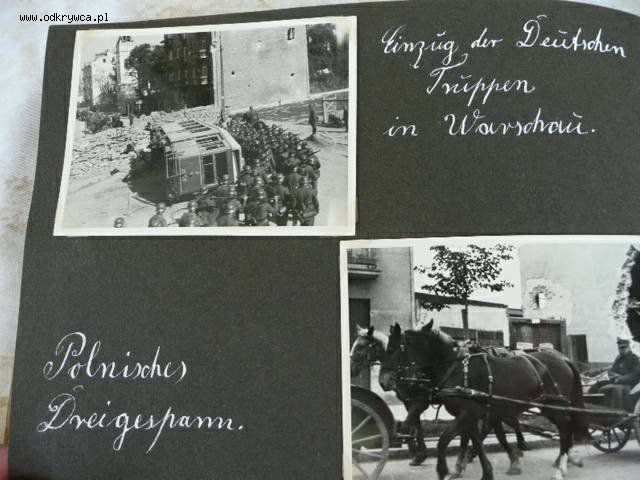 www.odkrywca.pl
Einzug der Deutschen
Truppen
in Warschau.
Polnisches
Dreigespann.